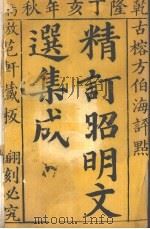 乾隆丁亥年秋
古榕方伯海評點
精訂昭明文
選集成
倣范軒藏板 翻刻必究